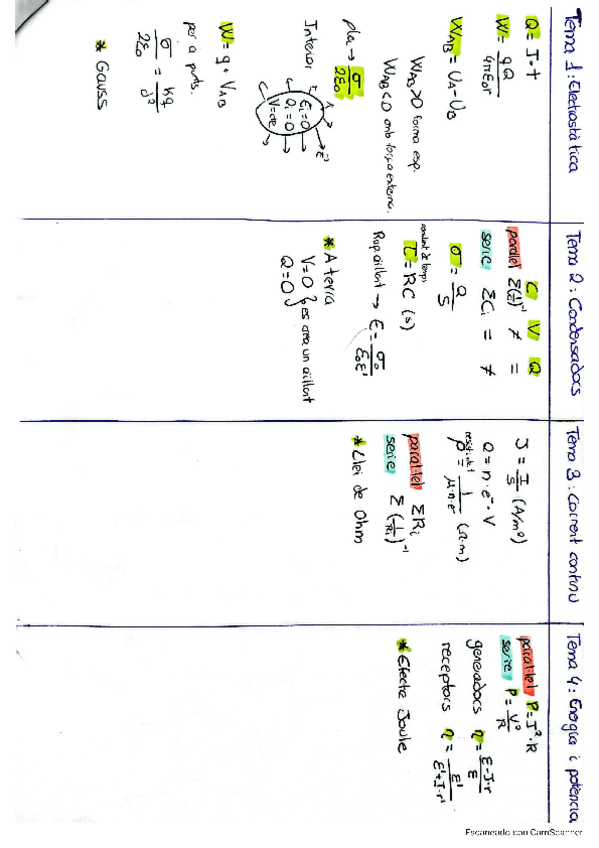 Tema 1: Electrostàtica
Q = I · t
W = qQ / 4πε₀r
W_AB = U_A - U_B
W_AB > 0 forma esp.
W_AB < 0 amb força externa.
pla → σ / 2ε₀
Interior
E_i = 0
Q_i = 0
V = cte
E
W = q · V_AB
per a punts.
σ / 2ε₀ = kq / d²
* Gauss
Tema 2: Condensadors
C V Q
paral·lel Σ(1/C)⁻¹ ≠ =
serie ΣC_i = ≠
σ = Q / S
constant de temps
τ = RC (s)
Rap aillant → E = σ₀ / ε₀ε'
* A terra
V = 0
Q = 0 } es crea un aillant
Tema 3: Corrent continu
J = I / S (A/m²)
Q = n · e⁻ · V
resistivitat
ρ = 1 / μ·n·e⁻ (Ω·m)
paral·lel ΣR_i
serie Σ(1/R_i)⁻¹
* Llei de Ohm
Tema 4: Energia i potència
paral·lel P = I² · R
serie P = V² / R
generadors η = E - I·r / E
receptors η = E' / E' + I·r'
* Efecte Joule
Escaneado con CamScanner